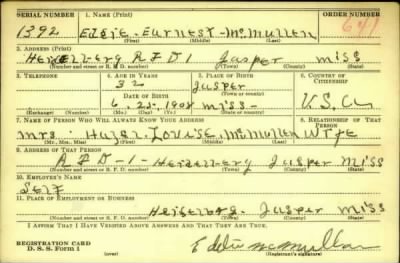 SERIAL NUMBER 1. NAME (Print) ORDER NUMBER
1392 Eddie - Earnest - McMullen 641
(First) (Middle) (Last)
2. ADDRESS (Print)
Heidelberg RFD 1 Jasper Miss
(Number and street or R. F. D. number) (Town) (County) (State)
3. TELEPHONE 4. AGE IN YEARS 5. PLACE OF BIRTH 6. COUNTRY OF CITIZENSHIP
32 Jasper
(Town or county)
DATE OF BIRTH
6. 25 - 1908 Miss - U.S.A
(Exchange) (Number) (Mo.) (Day) (Yr.) (State or country)
7. NAME OF PERSON WHO WILL ALWAYS KNOW YOUR ADDRESS 8. RELATIONSHIP OF THAT PERSON
Mrs - Louise McMullen Wife
(Mr., Mrs., Miss) (First) (Middle) (Last)
9. ADDRESS OF THAT PERSON
RFD - 1 - Heidelberg Jasper Miss
(Number and street or R. F. D. number) (Town) (County) (State)
10. EMPLOYER'S NAME
Self
11. PLACE OF EMPLOYMENT OR BUSINESS
Heidelberg - Jasper Miss
(Number and street or R. F. D. number) (Town) (County) (State)
I AFFIRM THAT I HAVE VERIFIED ABOVE ANSWERS AND THAT THEY ARE TRUE.
REGISTRATION CARD
D. S. S. Form 1 (over) Eddie McMullen
(Registrant's signature)